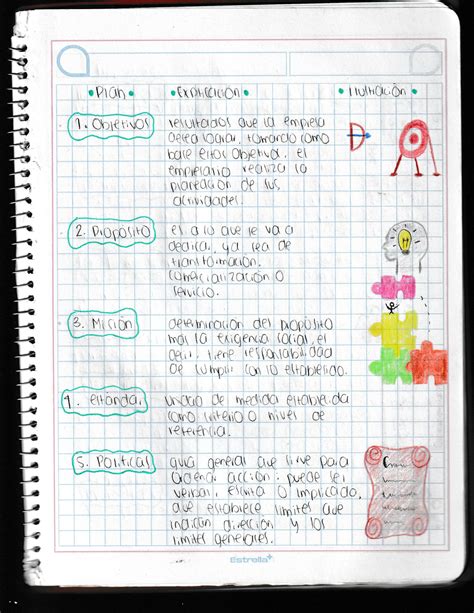 • Plan •
• Explicación •
• Ilustración •
1. Objetivos
resultados que la empresa
desea lograr, tomando como
base estos objetivos. el
empresario realiza la
planeación de sus
actividades.
2. Propósito
es a lo que se va a
dedica, ya sea de
transformación.
comercialización o
servicio.
3. Misión
determinación del propósito
mas la exigencia social, es
decir, tiene responsabilidad
de cumplir con lo establecido.
4. estándar
unidad de medida establecida
como criterio o nivel de
referencia.
5. Políticas
guía general que sirve para
ordenar acción: puede ser
verbal, escrita o implicada,
que establece límites que
indican dirección y los
limites generales.
Estrella